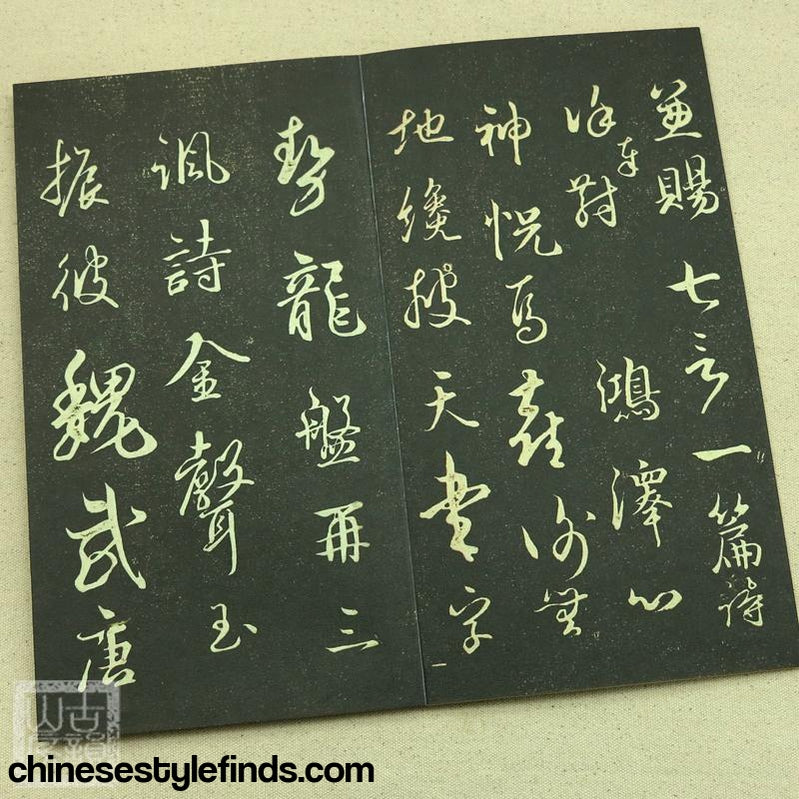 兼賜七言一篇詩
奉對鴻澤心
神悦焉喜無
地纔披天書字
勢龍盤再三
諷詩金聲玉
振彼魏武唐
chinesestylefinds.com